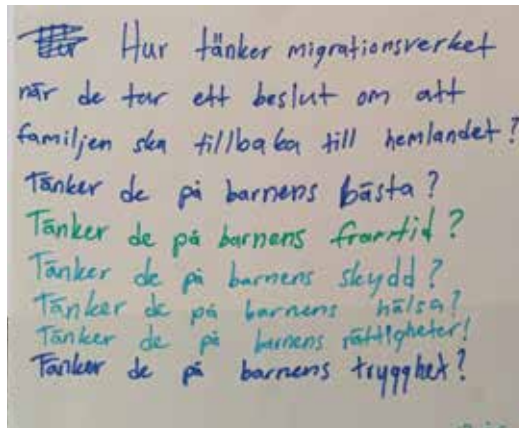 Hur tänker migrationsverket
när de tar ett beslut om att
familjen ska tillbaka till hemlandet?
Tänker de på barnens bästa?
Tänker de på barnens framtid?
Tänker de på barnens skydd?
Tänker de på barnens hälsa?
Tänker de på barnens rättigheter!
Tänker de på barnens trygghet?